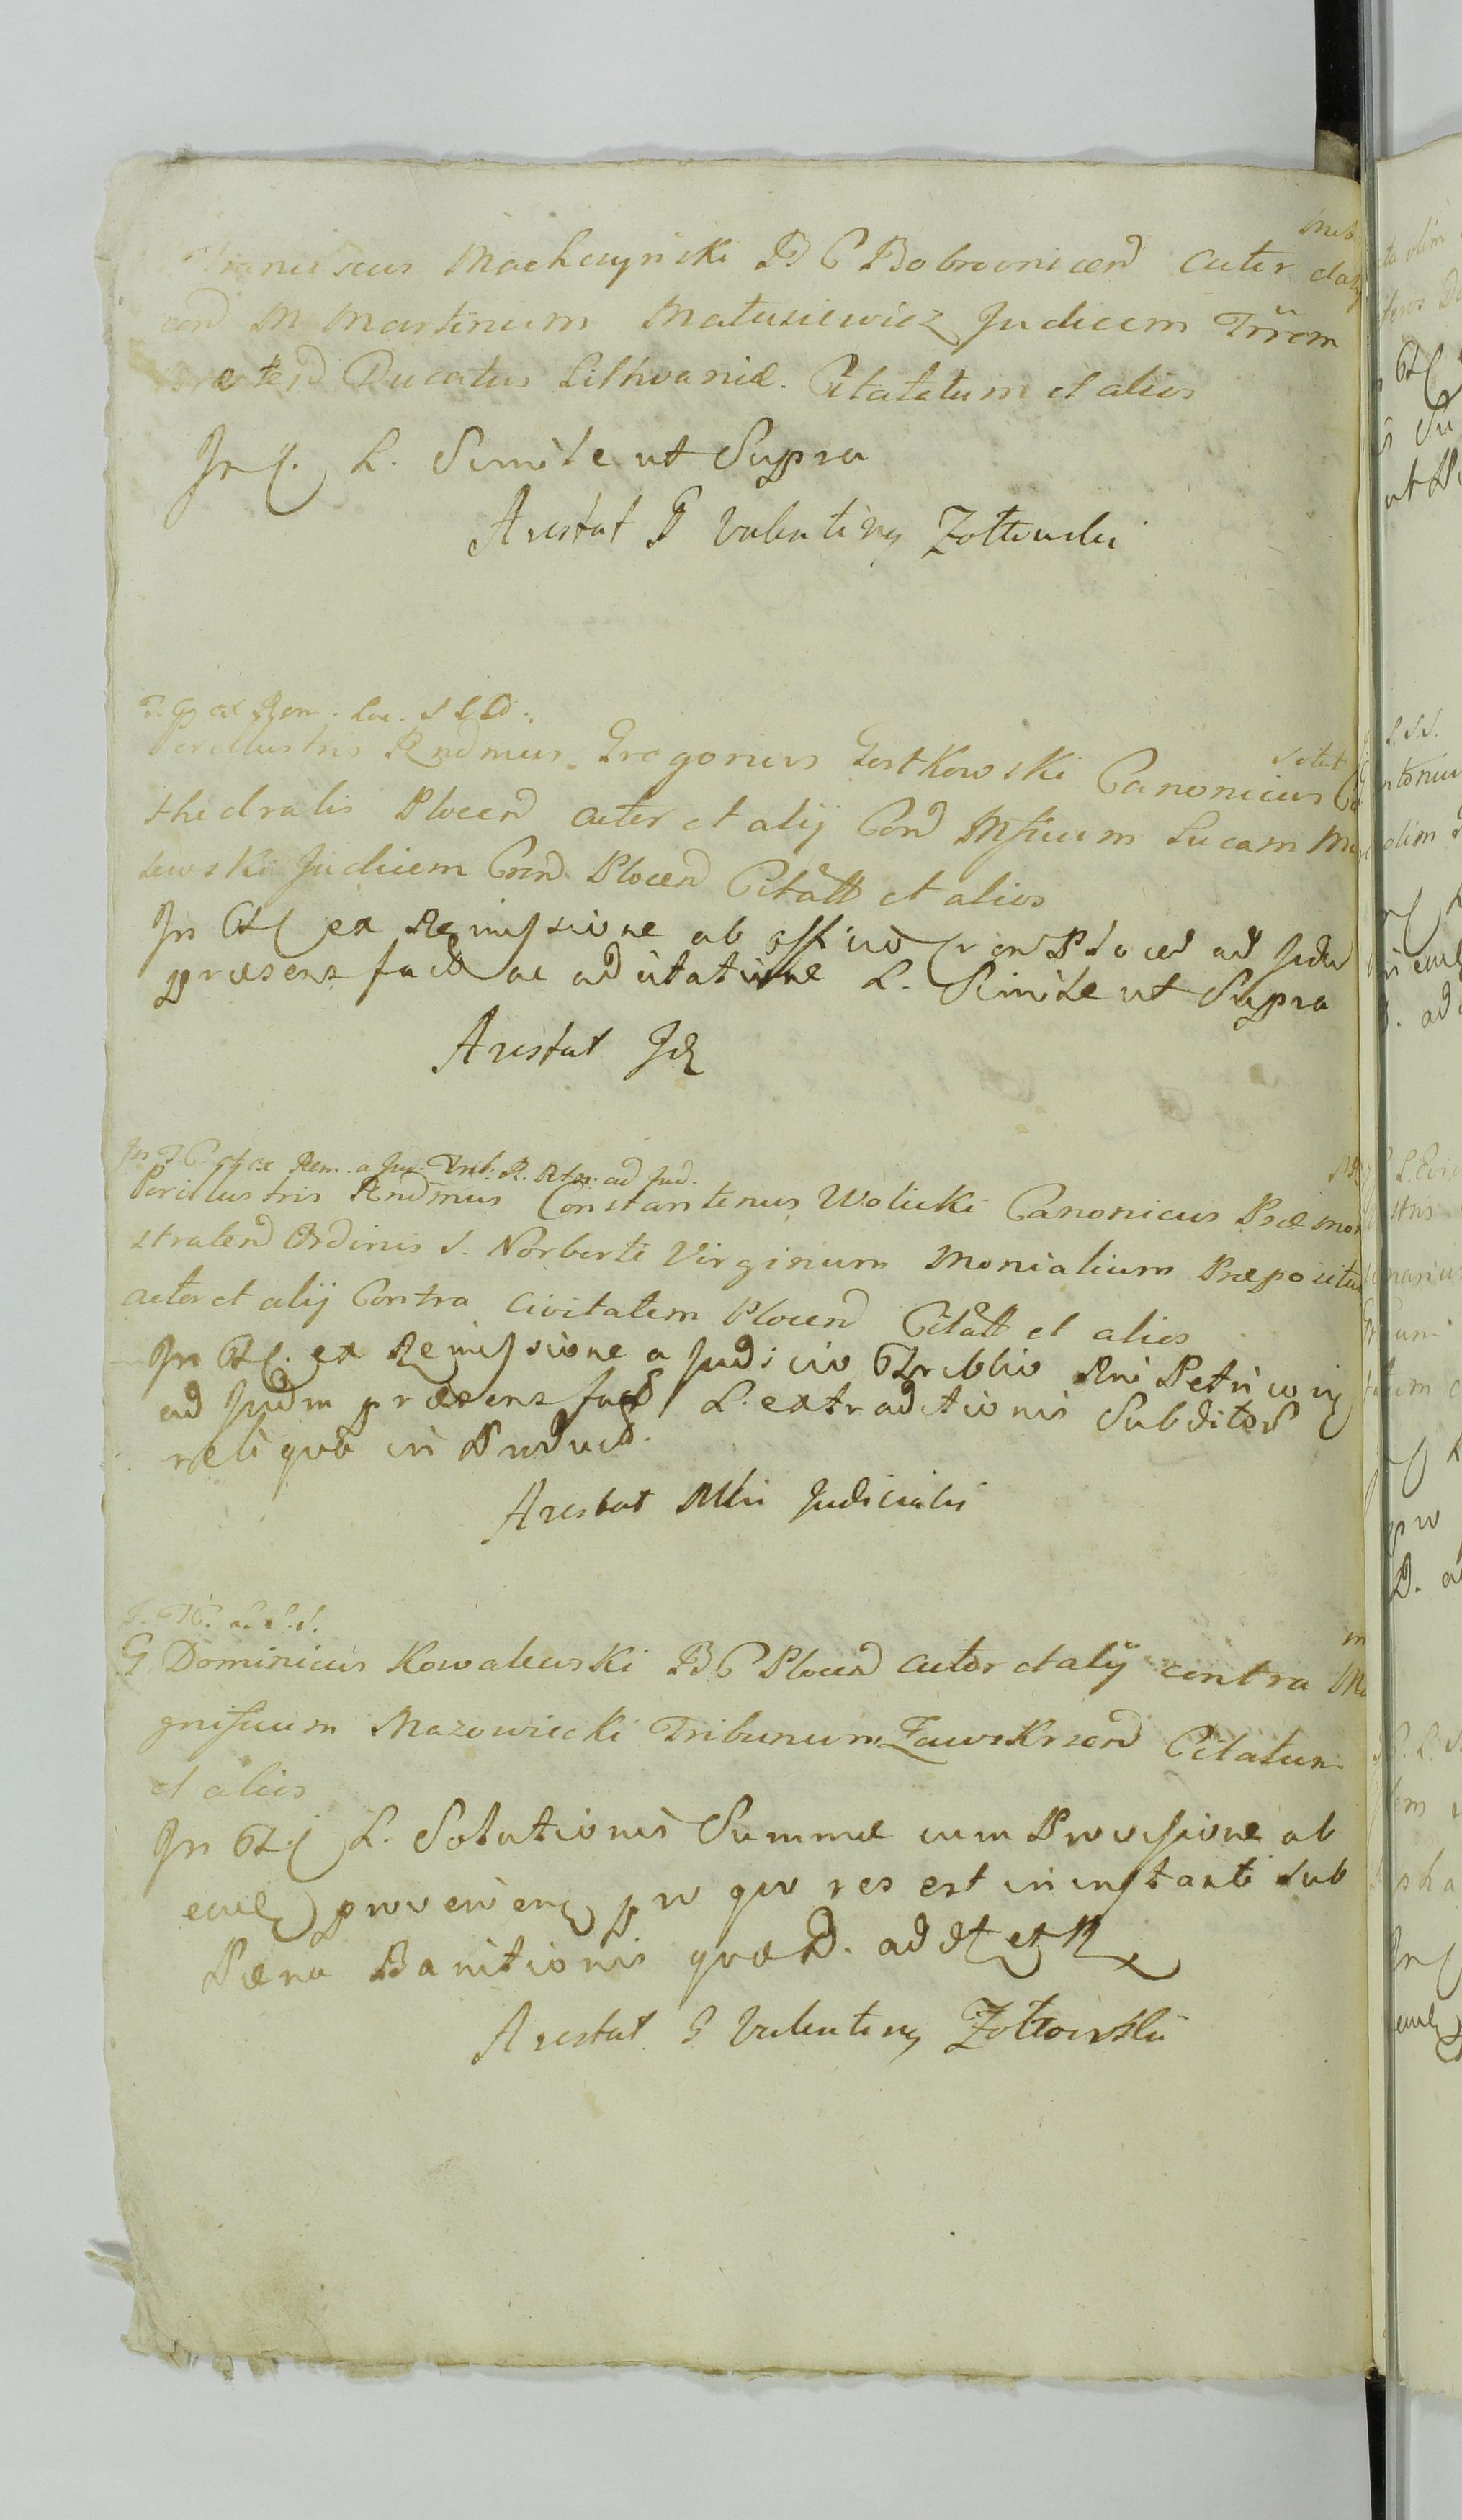 Franciscus Machczynski B C Bobrovnicen Actor et alij
con M Martinum Matusiewicz Judicem Trrem
Ducatus Lithvaniæ. Citatatum et alios
In C. L. Simile ut Supra
Arestat G Valentinus Zołtowski
Perillustris Rndmus Gregorius Gostkowski Canonicus Ca
thedralis Plocen Actor et alij Con Mficum Lucam
lewski Judicem Cren Plocen Citatt et alios
In TC ex Remissione ab officio Cren Plocen ad Judm
præsens fact ac ad citatione L. Simile ut Supra
Arestat Id
In T C et ex Rem. a Jud. Trib. R. Petr. ad Jud.
Perillustris Rndmus Constantinus Wolicki Canonicus Præmon
straten Ordinis S. Norberti Virginum Monialium Præpositus
actor et alij Contra Civitatem Plocen Citatt et alios
In TC. ex Remissione a Judicio Tribblio Rni Petricovien
ad Judm præsens fact L. extraditionis Subditor
reliqua in Produc.
Arestat Mtri Judicialis
T. C. L. S. S.
G Dominicus Kowalewski B C Plocen Actor et alij contra Ma
gnificum Mazowiecki Tribunum Zawskrzen Citatum
et alios
In TC L. Solutionis Summæ cum Provisione ab
eadem provenien pro quo res est in instanti sub
Pæna Banitionis quæ D. ad et R
Arestat G Valentinus Zołtowski